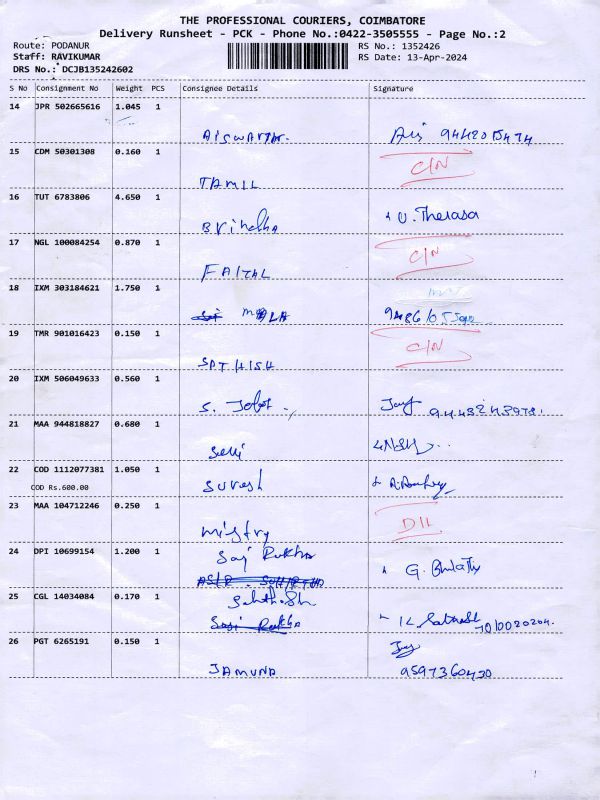 THE PROFESSIONAL COURIERS, COIMBATORE
Delivery Runsheet - PCK - Phone No.:0422-3505555 - Page No.:2
Route: PODANUR
RS No.: 1352426
Staff: RAVIKUMAR
RS Date: 13-Apr-2024
DRS No.: DCJB135242602
S No Consignment No Weight PCS Consignee Details Signature
14 JPR 502665616 1.045 1
15 CDM 50301308 0.160 1 C/N
TAMIL
16 TUT 6783806 4.650 1
U. Therasa
17 NGL 100084254 0.870 1 C/N
FAIZAL
18 IXM 303184621 1.750 1
19 TMR 901016423 0.150 1 C/N
SATHISH
20 IXM 506049633 0.560 1
S.
21 MAA 944818827 0.680 1
Selvi
22 COD 1112077381 1.050 1
COD Rs.600.00
Suresh
23 MAA 104712246 0.250 1 D/L
mistry
24 DPI 10699154 1.200 1
G.
25 CGL 14034084 0.170 1
26 PGT 6265191 0.150 1
JAMUNA